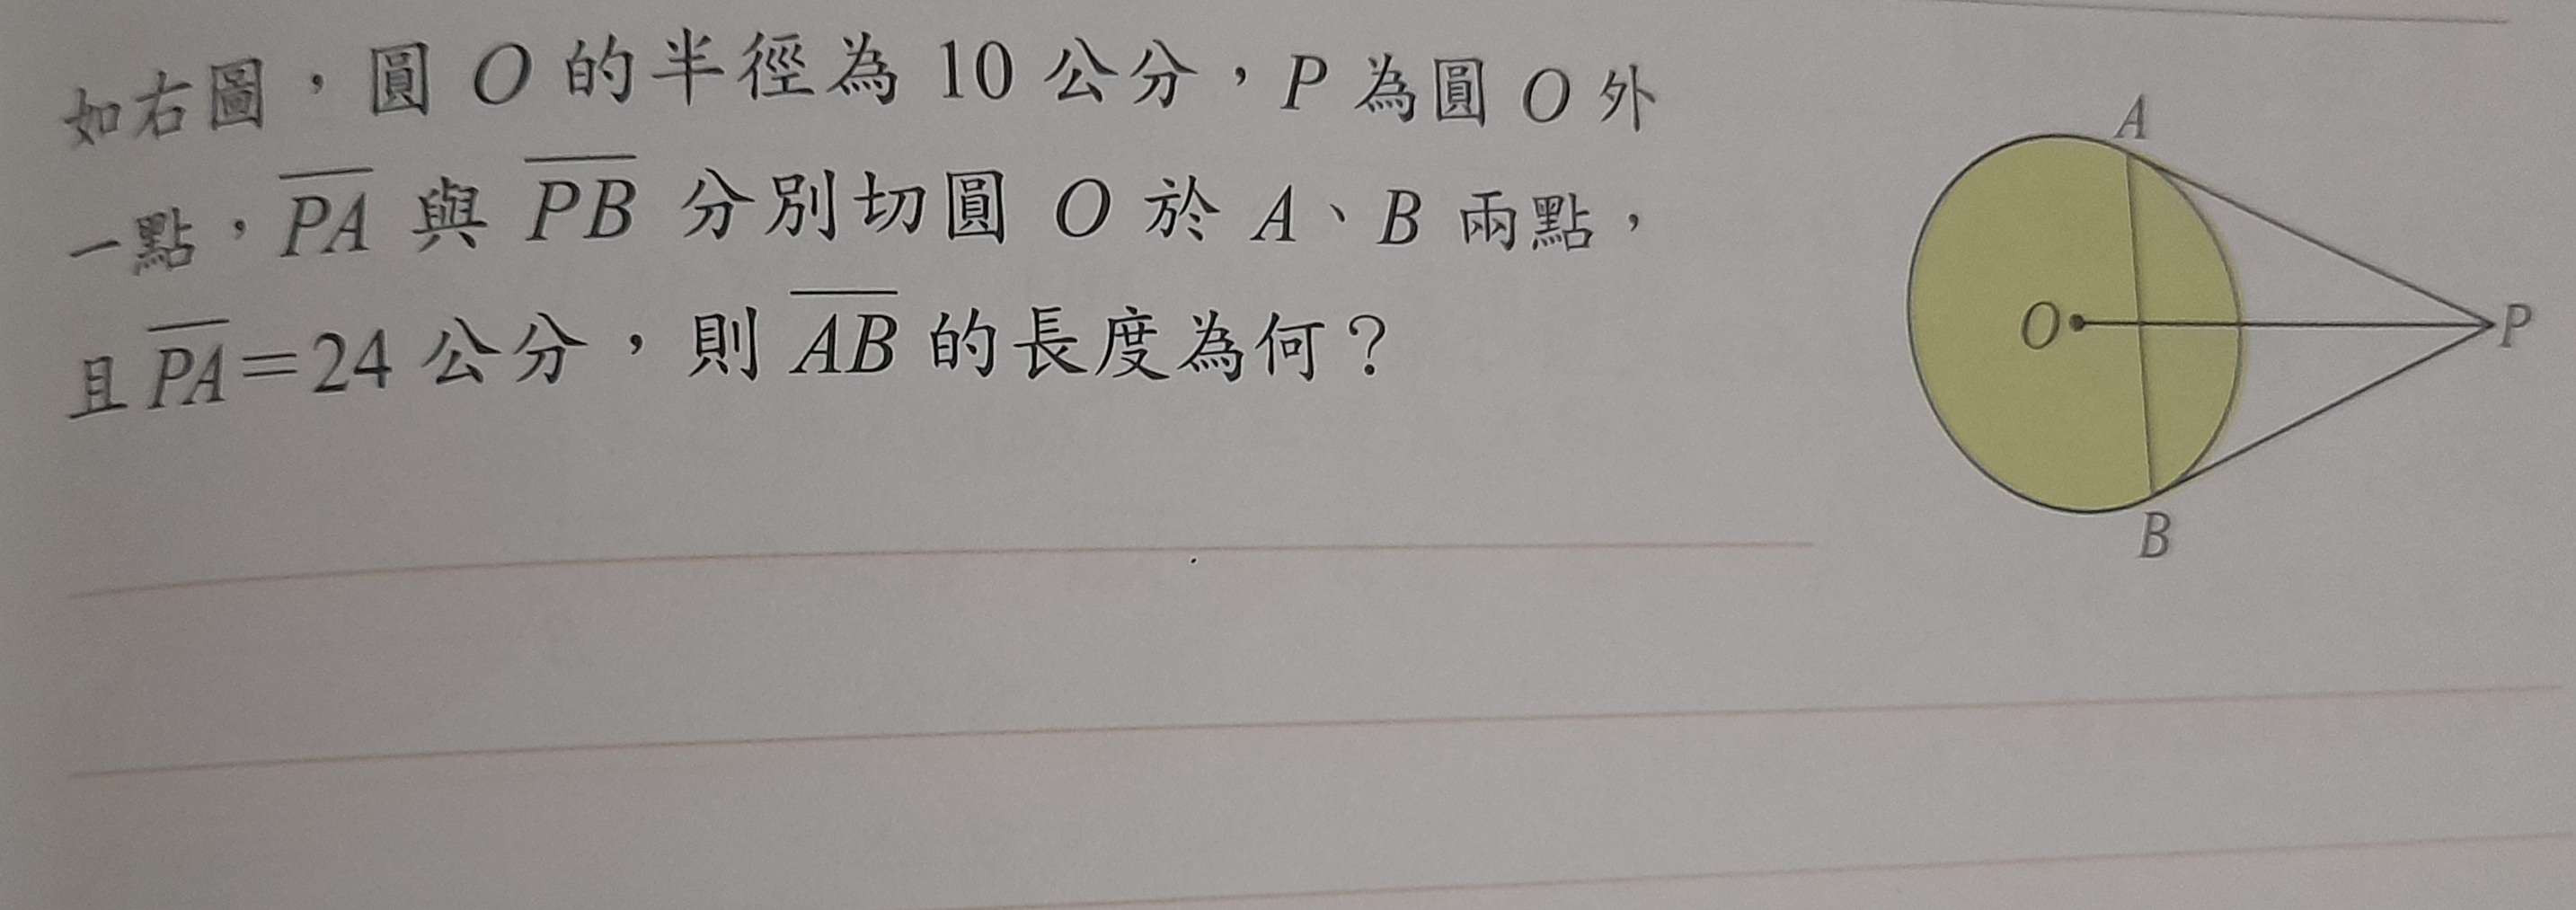 如右圖，圓 O 的半徑為 10 公分，P 為圓 O 外
一點，\overline{PA} 與 \overline{PB} 分別切圓 O 於 A、B 兩點，
且 \overline{PA}=24 公分，則 \overline{AB} 的長度為何？
A
O
P
B